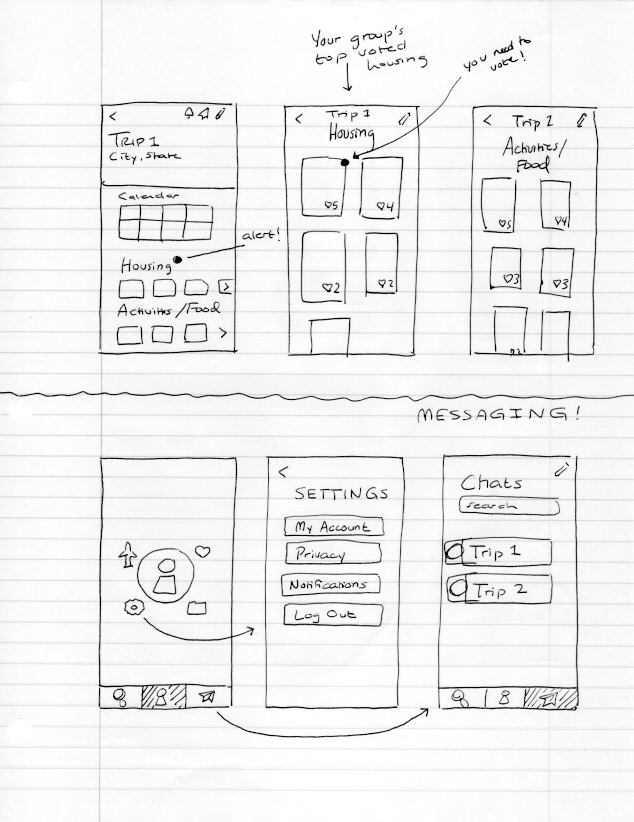 Your group's
top voted
housing
you need to
vote!
<
TRIP 1
City, State
Calendar
alert!
Housing
>
Activities/Food
>
<
Trip 1
Housing
♡5
♡4
♡2
♡2
<
Trip 2
Activities/
Food
♡5
♡4
♡3
♡3
♡2
MESSAGING!
<
SETTINGS
My Account
Privacy
Notifications
Log Out
Chats
search
Trip 1
Trip 2